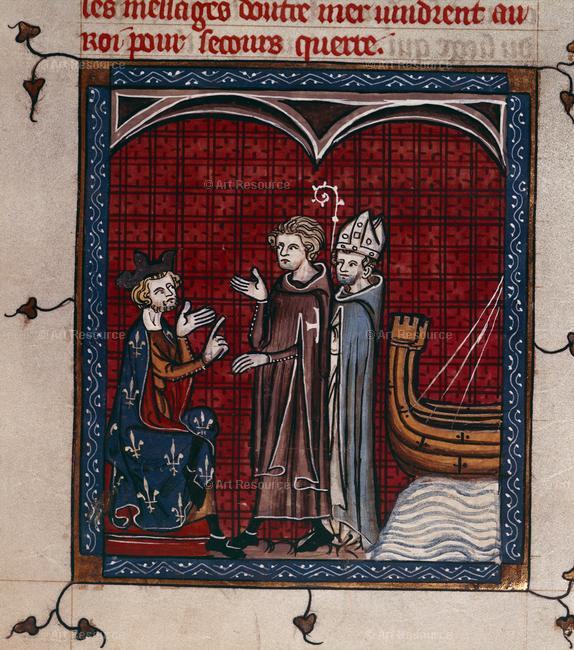 les messages doutre mer uindrent au
roi pour secours querre.
© Art Resource
© Art Resource
© Art Resource
© Art Resource
© Art Resource
© Art Resource
© Art Resource
© Art Resource
© Art Resource
© Art Resource
© Art Resource